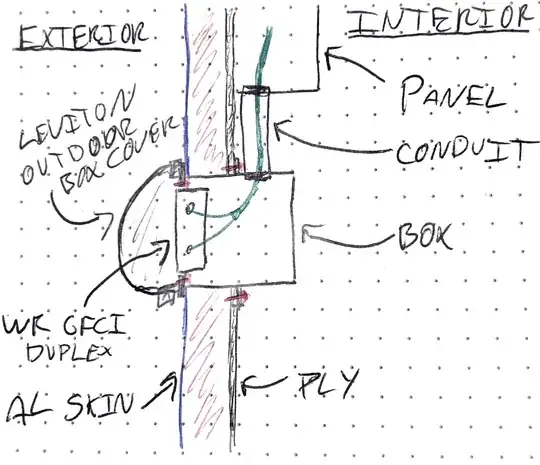 EXTERIOR
INTERIOR
LEVITON
OUTDOOR
BOX COVER
PANEL
CONDUIT
BOX
WR GFCI
DUPLEX
AL SKIN
PLY